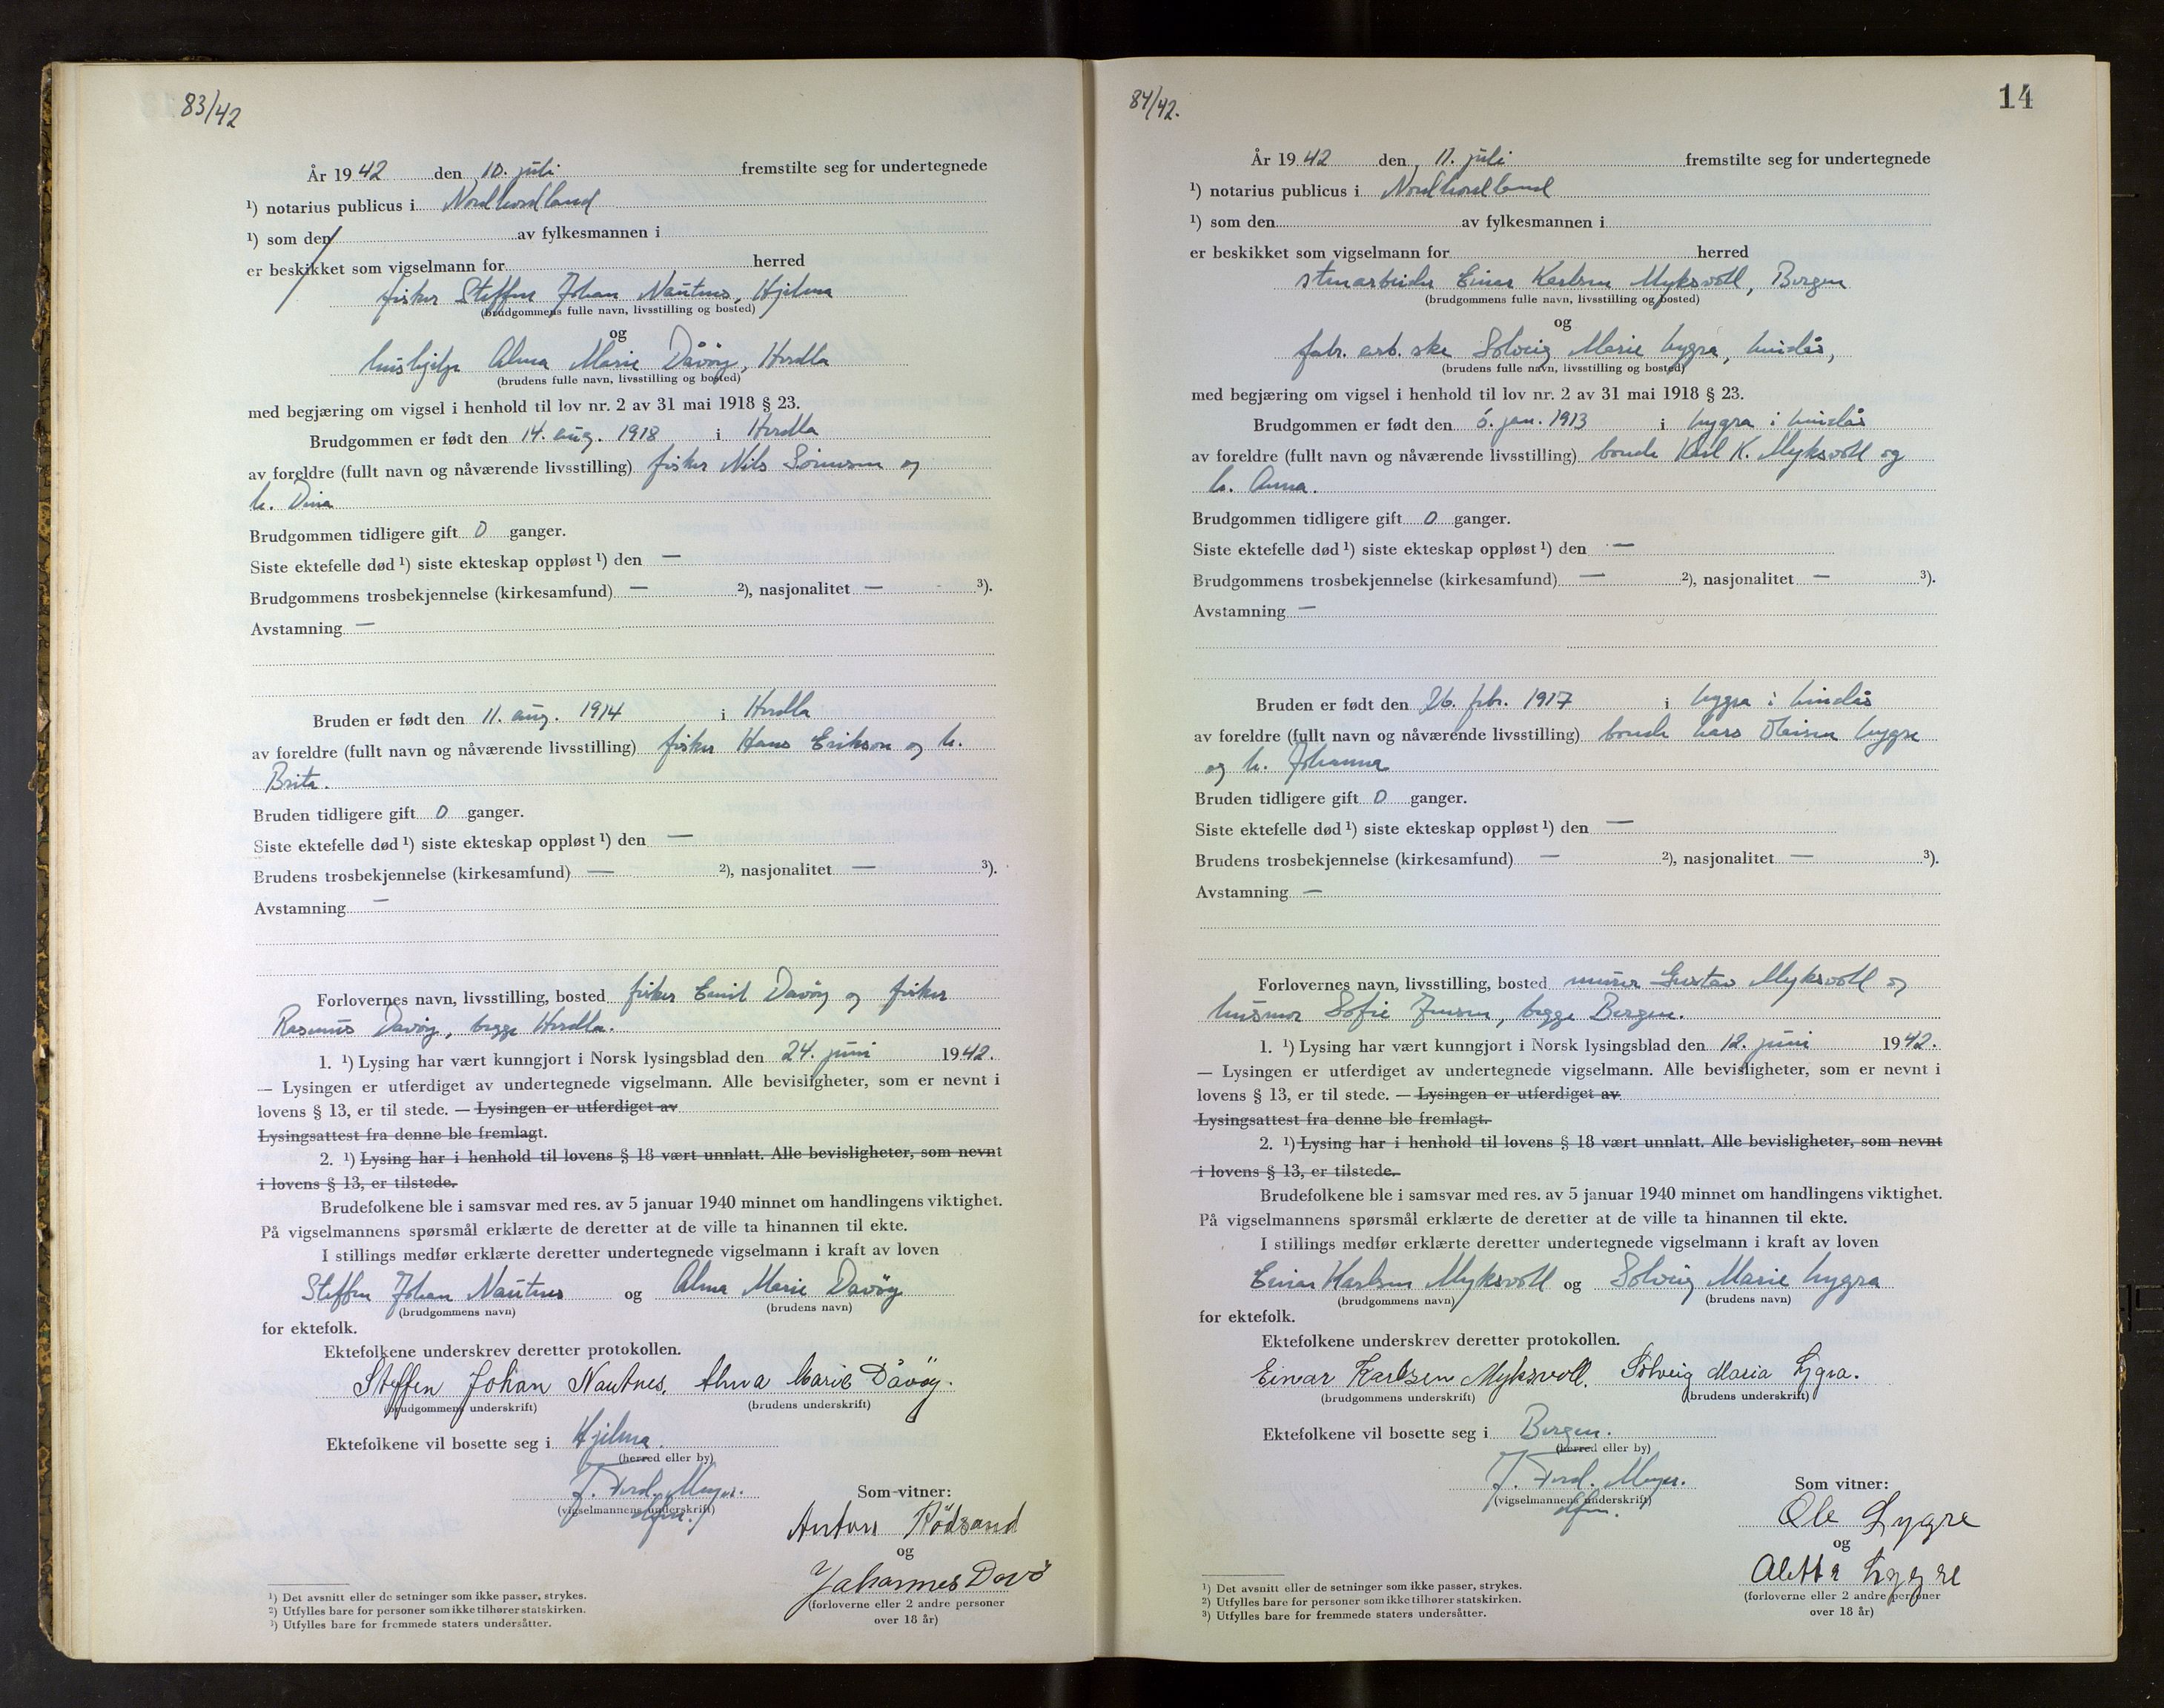 83/42
År 1942 den 10. juli fremstilte seg for undertegnede
¹) notarius publicus i Nordhordland
¹) som den av fylkesmannen i
er beskikket som vigselmann for herred
fisker Steffen Johan Nautnes, Hjelma
(brudgommens fulle navn, livsstilling og bosted)
og
hushjelp Alma Marie Dåvøy, Herdla
(brudens fulle navn, livsstilling og bosted)
med begjæring om vigsel i henhold til lov nr. 2 av 31 mai 1918 § 23.
Brudgommen er født den 14. aug. 1918 i Herdla
av foreldre (fullt navn og nåværende livsstilling) fisker Nils Simensen og
h. Dina
Brudgommen tidligere gift 0 ganger.
Siste ektefelle død ¹) siste ekteskap oppløst ¹) den —
Brudgommens trosbekjennelse (kirkesamfund) — ²), nasjonalitet — ³).
Avstamning —
Bruden er født den 11. aug. 1914 i Herdla
av foreldre (fullt navn og nåværende livsstilling) fisker Hans Erikson og h.
Brita.
Bruden tidligere gift 0 ganger.
Siste ektefelle død ¹) siste ekteskap oppløst ¹) den —
Brudens trosbekjennelse (kirkesamfund) — ²), nasjonalitet — ³).
Avstamning —
Forlovernes navn, livsstilling, bosted fisker Emil Davøy og fisker
Rasmus Davøy, begge Herdla.
1. ¹) Lysing har vært kunngjort i Norsk lysingsblad den 24. juni 1942.
— Lysingen er utferdiget av undertegnede vigselmann. Alle bevisligheter, som er nevnt i
lovens § 13, er til stede. — Lysingen er utferdiget av
Lysingsattest fra denne ble fremlagt.
2. ¹) Lysing har i henhold til lovens § 18 vært unnlatt. Alle bevisligheter, som nevnt
i lovens § 13, er tilstede.
Brudefolkene ble i samsvar med res. av 5 januar 1940 minnet om handlingens viktighet.
På vigselmannens spørsmål erklærte de deretter at de ville ta hinannen til ekte.
I stillings medfør erklærte deretter undertegnede vigselmann i kraft av loven
Steffen Johan Nautnes og Alma Marie Davøy
(brudgommens navn) (brudens navn)
for ektefolk.
Ektefolkene underskrev deretter protokollen.
Steffen Johan Nautnes, Alma Marie Dåvøy.
(brudgommens underskrift) (brudens underskrift)
Ektefolkene vil bosette seg i Hjelma.
(herred eller by)
J. Ferd. Meyer.
(vigselmannens underskrift)
Som vitner:
Anton Rödsand
og
Johannes Davö
(forloverne eller 2 andre personer
over 18 år)
¹) Det avsnitt eller de setninger som ikke passer, strykes.
²) Utfylles bare for personer som ikke tilhører statskirken.
³) Utfylles bare for fremmede staters undersåtter.
84/42.
14
År 1942 den 11. juli fremstilte seg for undertegnede
¹) notarius publicus i Nordhordland
¹) som den av fylkesmannen i
er beskikket som vigselmann for herred
stenarbeider Einar Karlsen Myksvoll, Bergen
(brudgommens fulle navn, livsstilling og bosted)
og
fabr. arb. ske Solveig Marie Lygra, Lindås,
(brudens fulle navn, livsstilling og bosted)
med begjæring om vigsel i henhold til lov nr. 2 av 31 mai 1918 § 23.
Brudgommen er født den 6. jan. 1913 i Lygra i Lindås
av foreldre (fullt navn og nåværende livsstilling) bonde Karl K. Myksvoll og
h. Anna.
Brudgommen tidligere gift 0 ganger.
Siste ektefelle død ¹) siste ekteskap oppløst ¹) den —
Brudgommens trosbekjennelse (kirkesamfund) — ²), nasjonalitet — ³).
Avstamning —
Bruden er født den 26. febr. 1917 i Lygra i Lindås
av foreldre (fullt navn og nåværende livsstilling) bonde Lars Olsen Lygre
og h. Johanna
Bruden tidligere gift 0 ganger.
Siste ektefelle død ¹) siste ekteskap oppløst ¹) den —
Brudens trosbekjennelse (kirkesamfund) — ²), nasjonalitet — ³).
Avstamning —
Forlovernes navn, livsstilling, bosted murer Gustav Myksvoll og
husmor Sofie Jensen, begge Bergen.
1. ¹) Lysing har vært kunngjort i Norsk lysingsblad den 12. juni 1942.
— Lysingen er utferdiget av undertegnede vigselmann. Alle bevisligheter, som er nevnt i
lovens § 13, er til stede. — Lysingen er utferdiget av
Lysingsattest fra denne ble fremlagt.
2. ¹) Lysing har i henhold til lovens § 18 vært unnlatt. Alle bevisligheter, som nevnt
i lovens § 13, er tilstede.
Brudefolkene ble i samsvar med res. av 5 januar 1940 minnet om handlingens viktighet.
På vigselmannens spørsmål erklærte de deretter at de ville ta hinannen til ekte.
I stillings medfør erklærte deretter undertegnede vigselmann i kraft av loven
Einar Karlsen Myksvoll og Solveig Marie Lygra
(brudgommens navn) (brudens navn)
for ektefolk.
Ektefolkene underskrev deretter protokollen.
Einar Karlsen Myksvoll. Solveig Maria Lygra.
(brudgommens underskrift) (brudens underskrift)
Ektefolkene vil bosette seg i Bergen.
(herred eller by)
J. Ferd. Meyer.
(vigselmannens underskrift)
Som vitner:
Ole Lygre
og
Aletta Lygre
(forloverne eller 2 andre personer
over 18 år)
¹) Det avsnitt eller de setninger som ikke passer, strykes.
²) Utfylles bare for personer som ikke tilhører statskirken.
³) Utfylles bare for fremmede staters undersåtter.